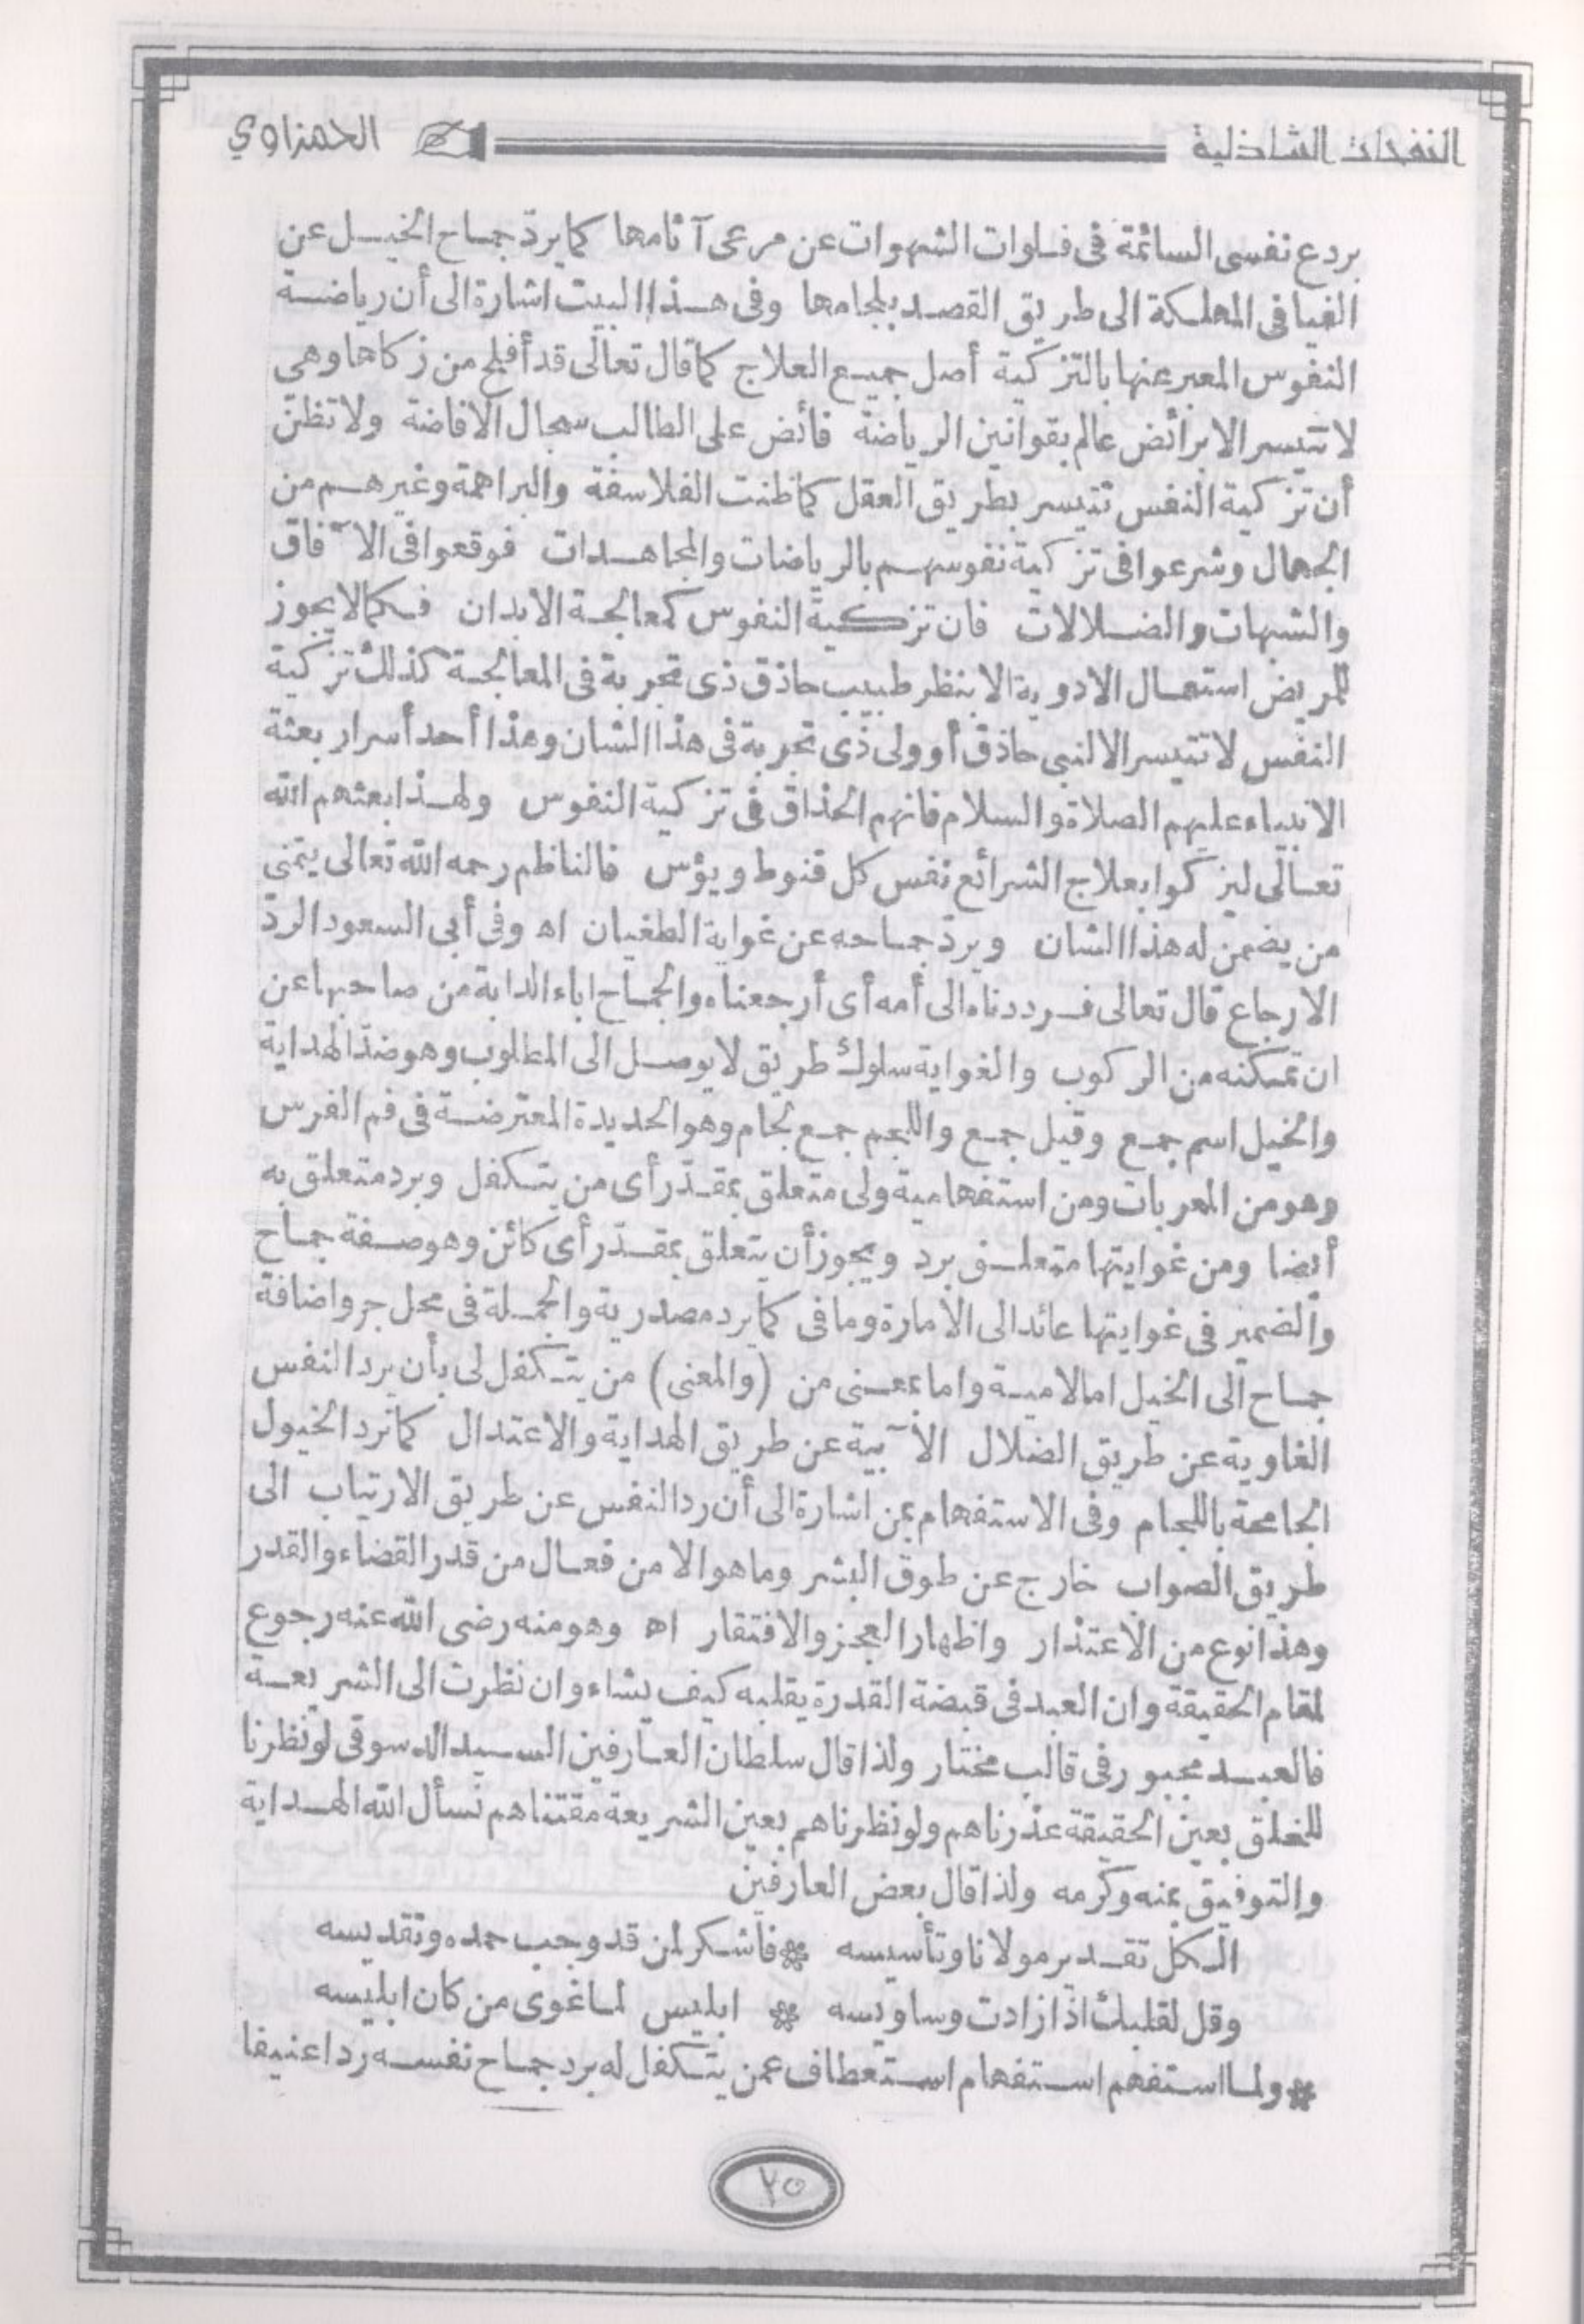 النفحات الشاذلية
الحمزاوي
بردع نفسى السائمة فى فلوات الشهوات عن مرعى آثامها كما يردّ جماح الخيل عن
الفيافى المهلكة الى طريق القصد بلجامها وفى هذا البيت اشارة الى أن رياضة
النفوس المعبر عنها بالتزكية أصل جميع العلاج كما قال تعالى قد أفلح من زكاها وهى
لا تتيسر الا برائض عالم بقوانين الرياضة فائض على الطالب سجال الافاضة ولا تظنّ
أن تزكية النفس تتيسر بطريق العقل كما ظنت الفلاسفة والبراهمة وغيرهم من
الجهال وشرعوا فى تزكية نفوسهم بالرياضات والمجاهدات فوقعوا فى الآفاق
والشبهات والضلالات فان تزكية النفوس كمعالجة الابدان فكما لا يجوز
للمريض استعمال الادوية الا بنظر طبيب حاذق ذى تجربة فى المعالجة كذلك تزكية
النفس لا تتيسر الا لنبى حاذق أو ولى ذى تجربة فى هذا الشان وهذا أحد أسرار بعثة
الانبياء عليهم الصلاة والسلام فانهم الحذاق فى تزكية النفوس ولهذا بعثهم الله
تعالى ليزكوا بعلاج الشرائع نفس كل قنوط ويؤس فالناظم رحمه الله تعالى يتمنى
من يضمن له هذا الشان ويردّ جماحه عن غواية الطغيان اه وفى أبى السعود الردّ
الارجاع قال تعالى فرددناه الى أمه أى أرجعناه والجماح اباء الدابة من صاحبها عن
ان تمكنه من الركوب والغواية سلوك طريق لا يوصل الى المطلوب وهو ضدّ الهداية
والخيل اسم جمع وقيل جمع واللجم جمع لجام وهو الحديدة المعترضة فى فم الفرس
وهو من المعربات ومن استفهامية ولى متعلق بمقدّر أى من يتكفل وبرد متعلق به
أيضا ومن غوايتها متعلق برد ويجوز أن يتعلق بمقدّر أى كائن وهو صفة جماح
والضمير فى غوايتها عائد الى الأمارة وما فى كما يرد مصدرية والجملة فى محل جر واضافة
جماح الى الخيل اما لامية واما بمعنى من (والمعنى) من يتكفل لى بأن يرد النفس
الغاوية عن طريق الضلال الآبية عن طريق الهداية والاعتدال كما ترد الخيول
الجامحة باللجام وفى الاستفهام بمن اشارة الى أن رد النفس عن طريق الارتياب الى
طريق الصواب خارج عن طوق البشر وما هو الا من فعال من قدر القضاء والقدر
وهذا نوع من الاعتذار واظهار العجز والافتقار اه وهو منه رضى الله عنه رجوع
لمقام الحقيقة وان العبد فى قبضة القدرة يقلبه كيف يشاء وان نظرت الى الشريعة
فالعبد مجبور فى قالب مختار ولذا قال سلطان العارفين السيد الدسوقى لو نظرنا
للخلق بعين الحقيقة عذرناهم ولو نظرناهم بعين الشريعة مقتناهم نسأل الله الهداية
والتوفيق بمنه وكرمه ولذا قال بعض العارفين
الكل تقدير مولانا وتأسيسه * فاشكر لمن قد وجب حمده وتقديسه
وقل لقلبك اذا زادت وساويسه * ابليس لما غوى من كان ابليسه
* ولما استفهم استفهام استعطاف عمن يتكفل له برد جماح نفسه ردا عنيفا
٢٥